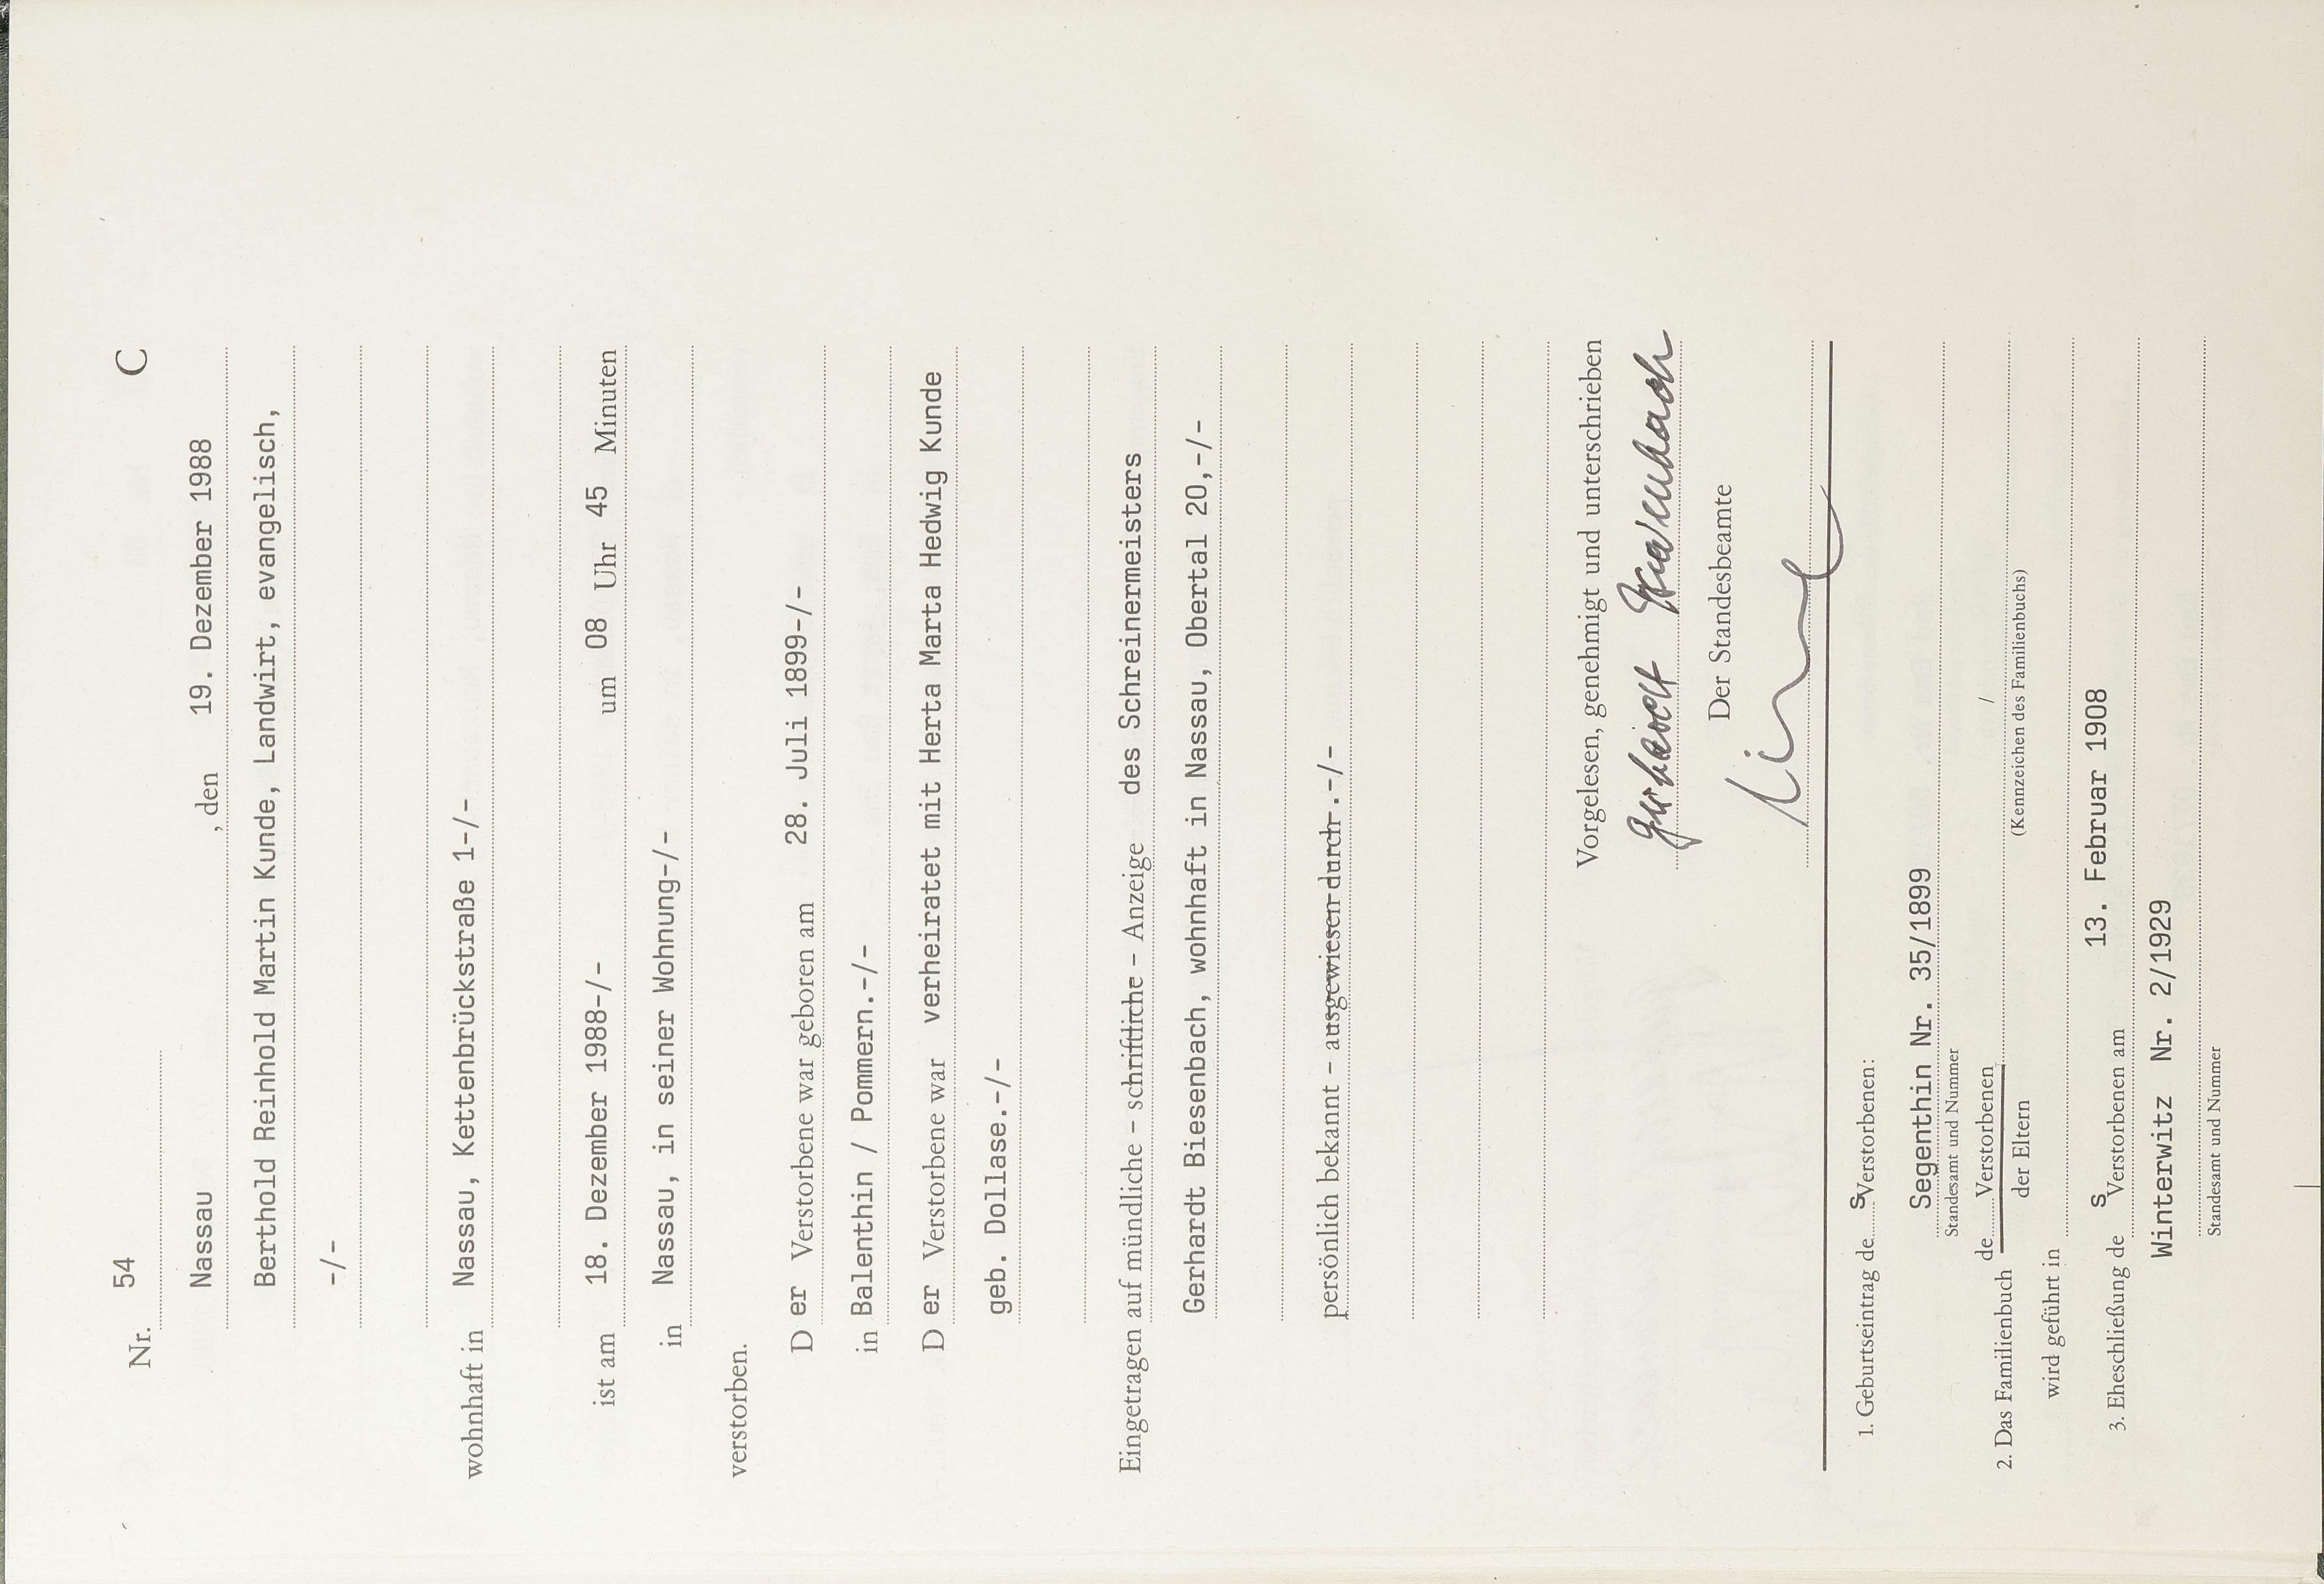 C
Nr. 54
Nassau , den 19. Dezember 1988
Berthold Reinhold Martin Kunde, Landwirt, evangelisch,
-/-
wohnhaft in Nassau, Kettenbrückstraße 1-/-
ist am 18. Dezember 1988-/- um 08 Uhr 45 Minuten
in Nassau, in seiner Wohnung-/-
verstorben.
D er Verstorbene war geboren am 28. Juli 1899-/-
in Balenthin / Pommern.-/-
D er Verstorbene war verheiratet mit Herta Marta Hedwig Kunde
geb. Dollase.-/-
Eingetragen auf mündliche – schriftliche – Anzeige des Schreinermeisters
Gerhardt Biesenbach, wohnhaft in Nassau, Obertal 20,-/-
persönlich bekannt – ausgewiesen durch .-/-
Vorgelesen, genehmigt und unterschrieben
Gerhardt Biesenbach
Der Standesbeamte
1. Geburtseintrag de s Verstorbenen:
Segenthin Nr. 35/1899
Standesamt und Nummer
2. Das Familienbuch de Verstorbenen /
der Eltern (Kennzeichen des Familienbuchs)
wird geführt in
3. Eheschließung de s Verstorbenen am 13. Februar 1908
Winterwitz Nr. 2/1929
Standesamt und Nummer